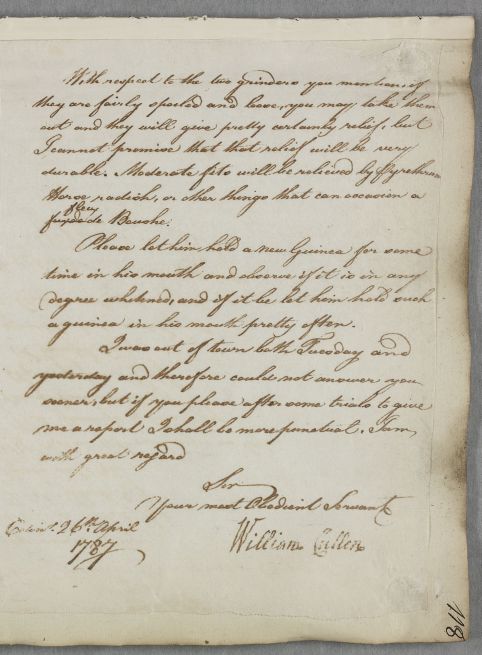 With respect to the two grinders you mention, if
they are fairly spoiled and loose, you may take them
out and they will give pretty certainly relief, but
I cannot promise that that relief will be very
durable. Moderate fits will be relieved by Pyrethrum
Horse radish, or other things that can occasion a
flux
de Bouche.
Please let him hold a new Guinea for some
time in his mouth and observe if it is in any
degree whitened, and if it be let him hold such
a guinea in his mouth pretty often.
I was out of town both Tuesday and
yesterday and therefore could not answer you
sooner, but if you please after some trials to give
me a report I shall be more punctual. I am,
with great regard
Sir
Your most Obedient Servant
Edinr. 26th April
1787
William Cullen
118